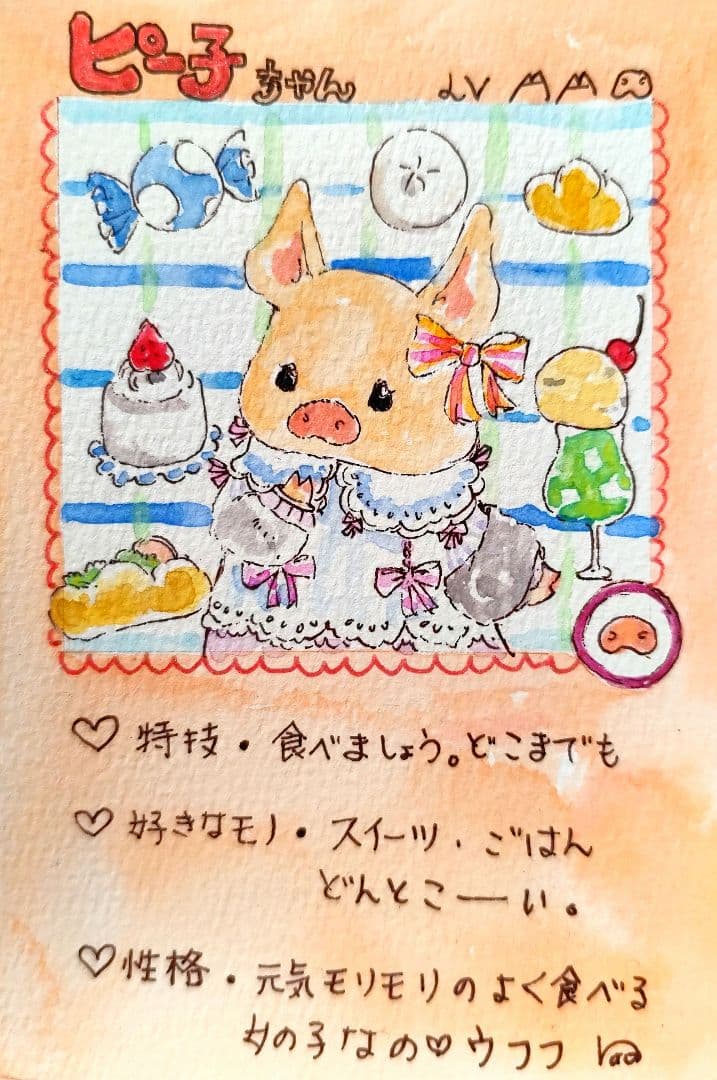 ピー子ちゃん LV
♡ 特技・食べましょう。どこまでも
♡ 好きなモノ・スイーツ・ごはん
どんとこーい。
♡ 性格・元気モリモリのよく食べる
女の子なの♡ウフフ